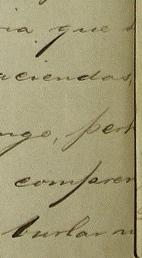 ia, que
aciendas,
ngo, pert
comprer
burlar n